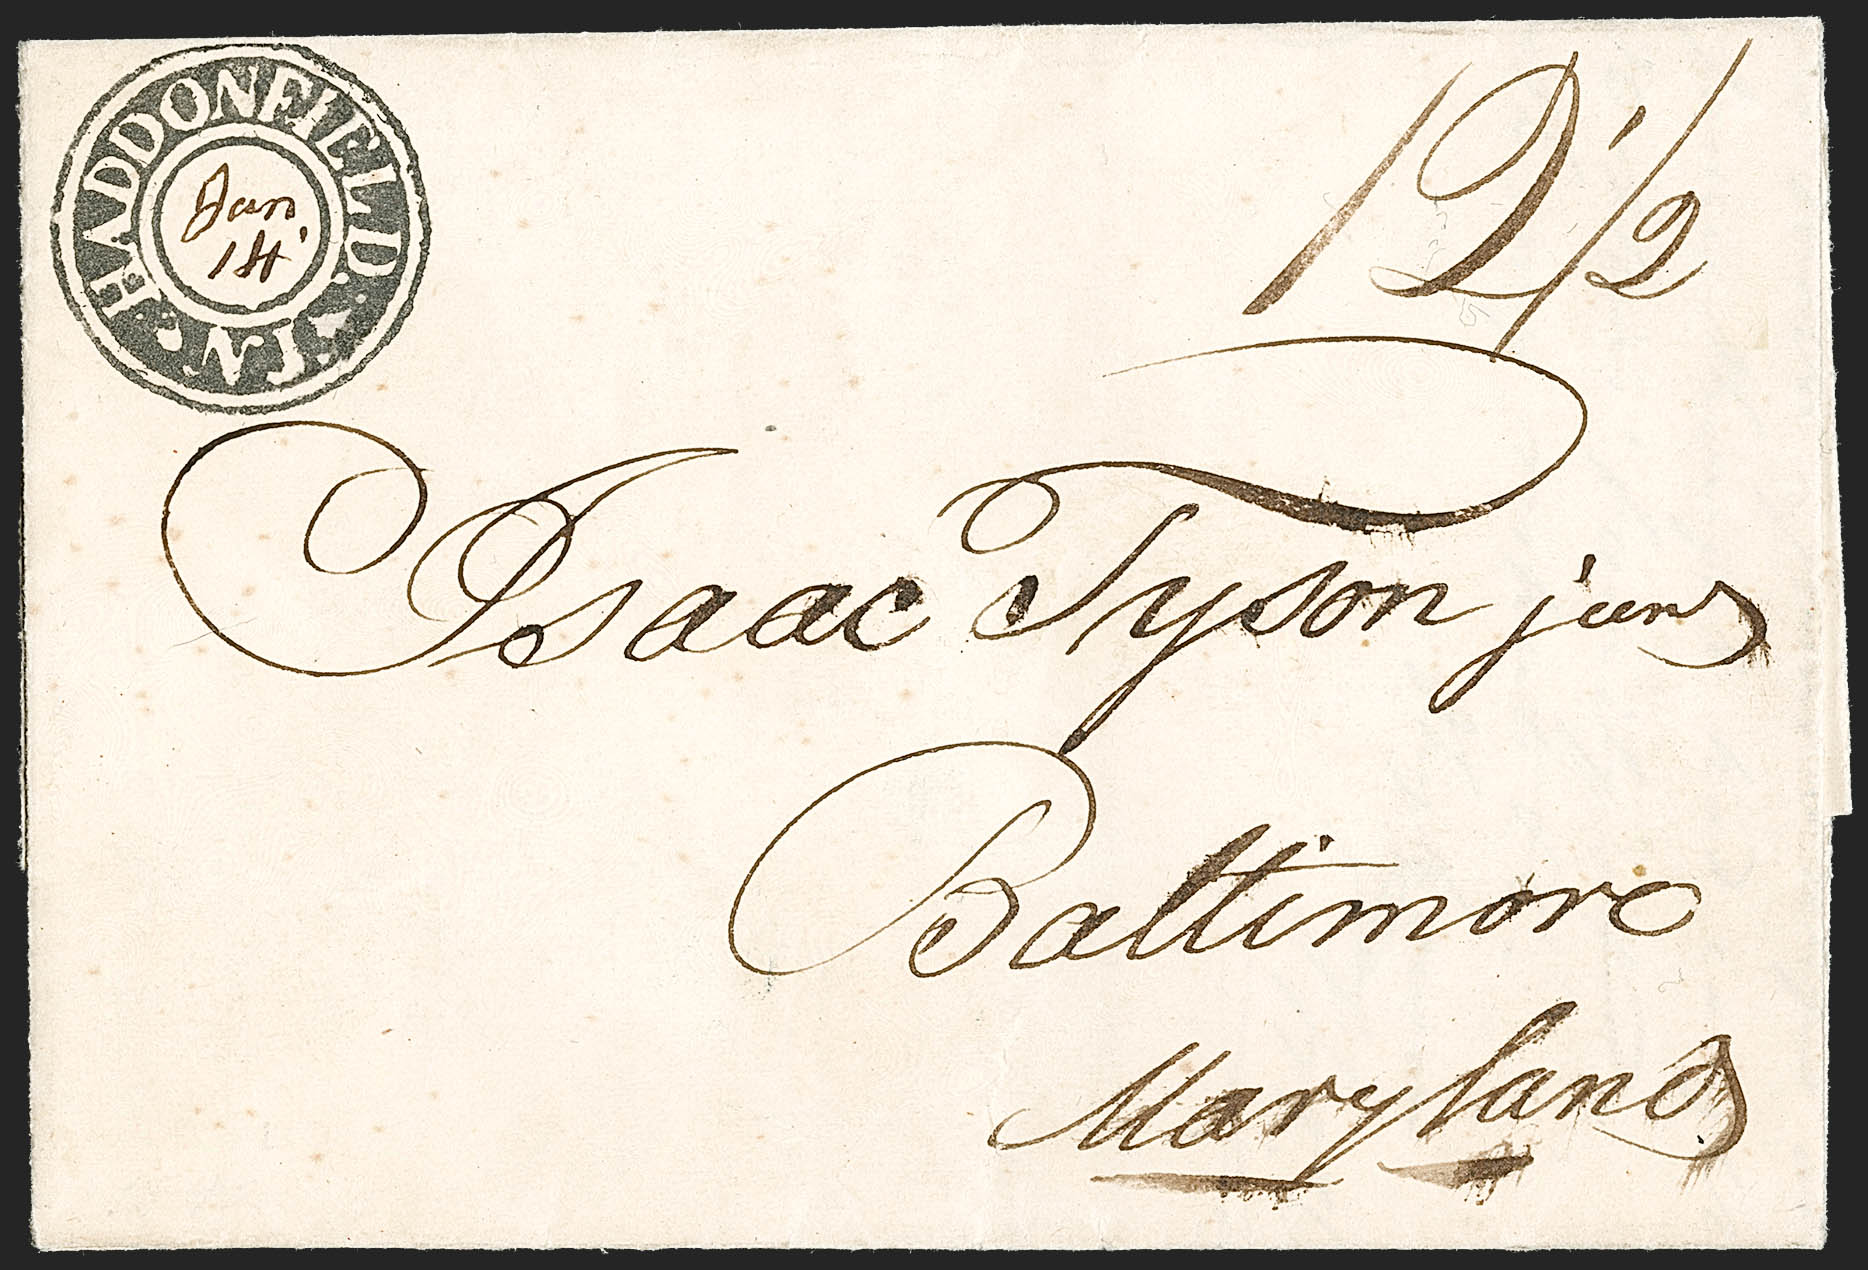 HADDONFIELD. N.J.
Jan
14
12 1/2
Isaac Tyson junr
Baltimore
Maryland